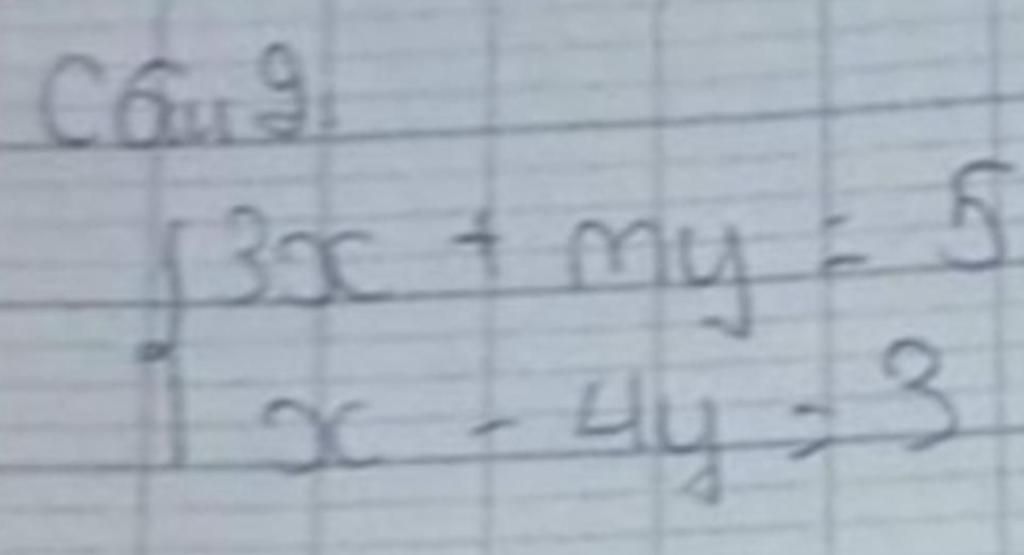 Câu 9:
{ 3x + my = 5
x - 4y = 3